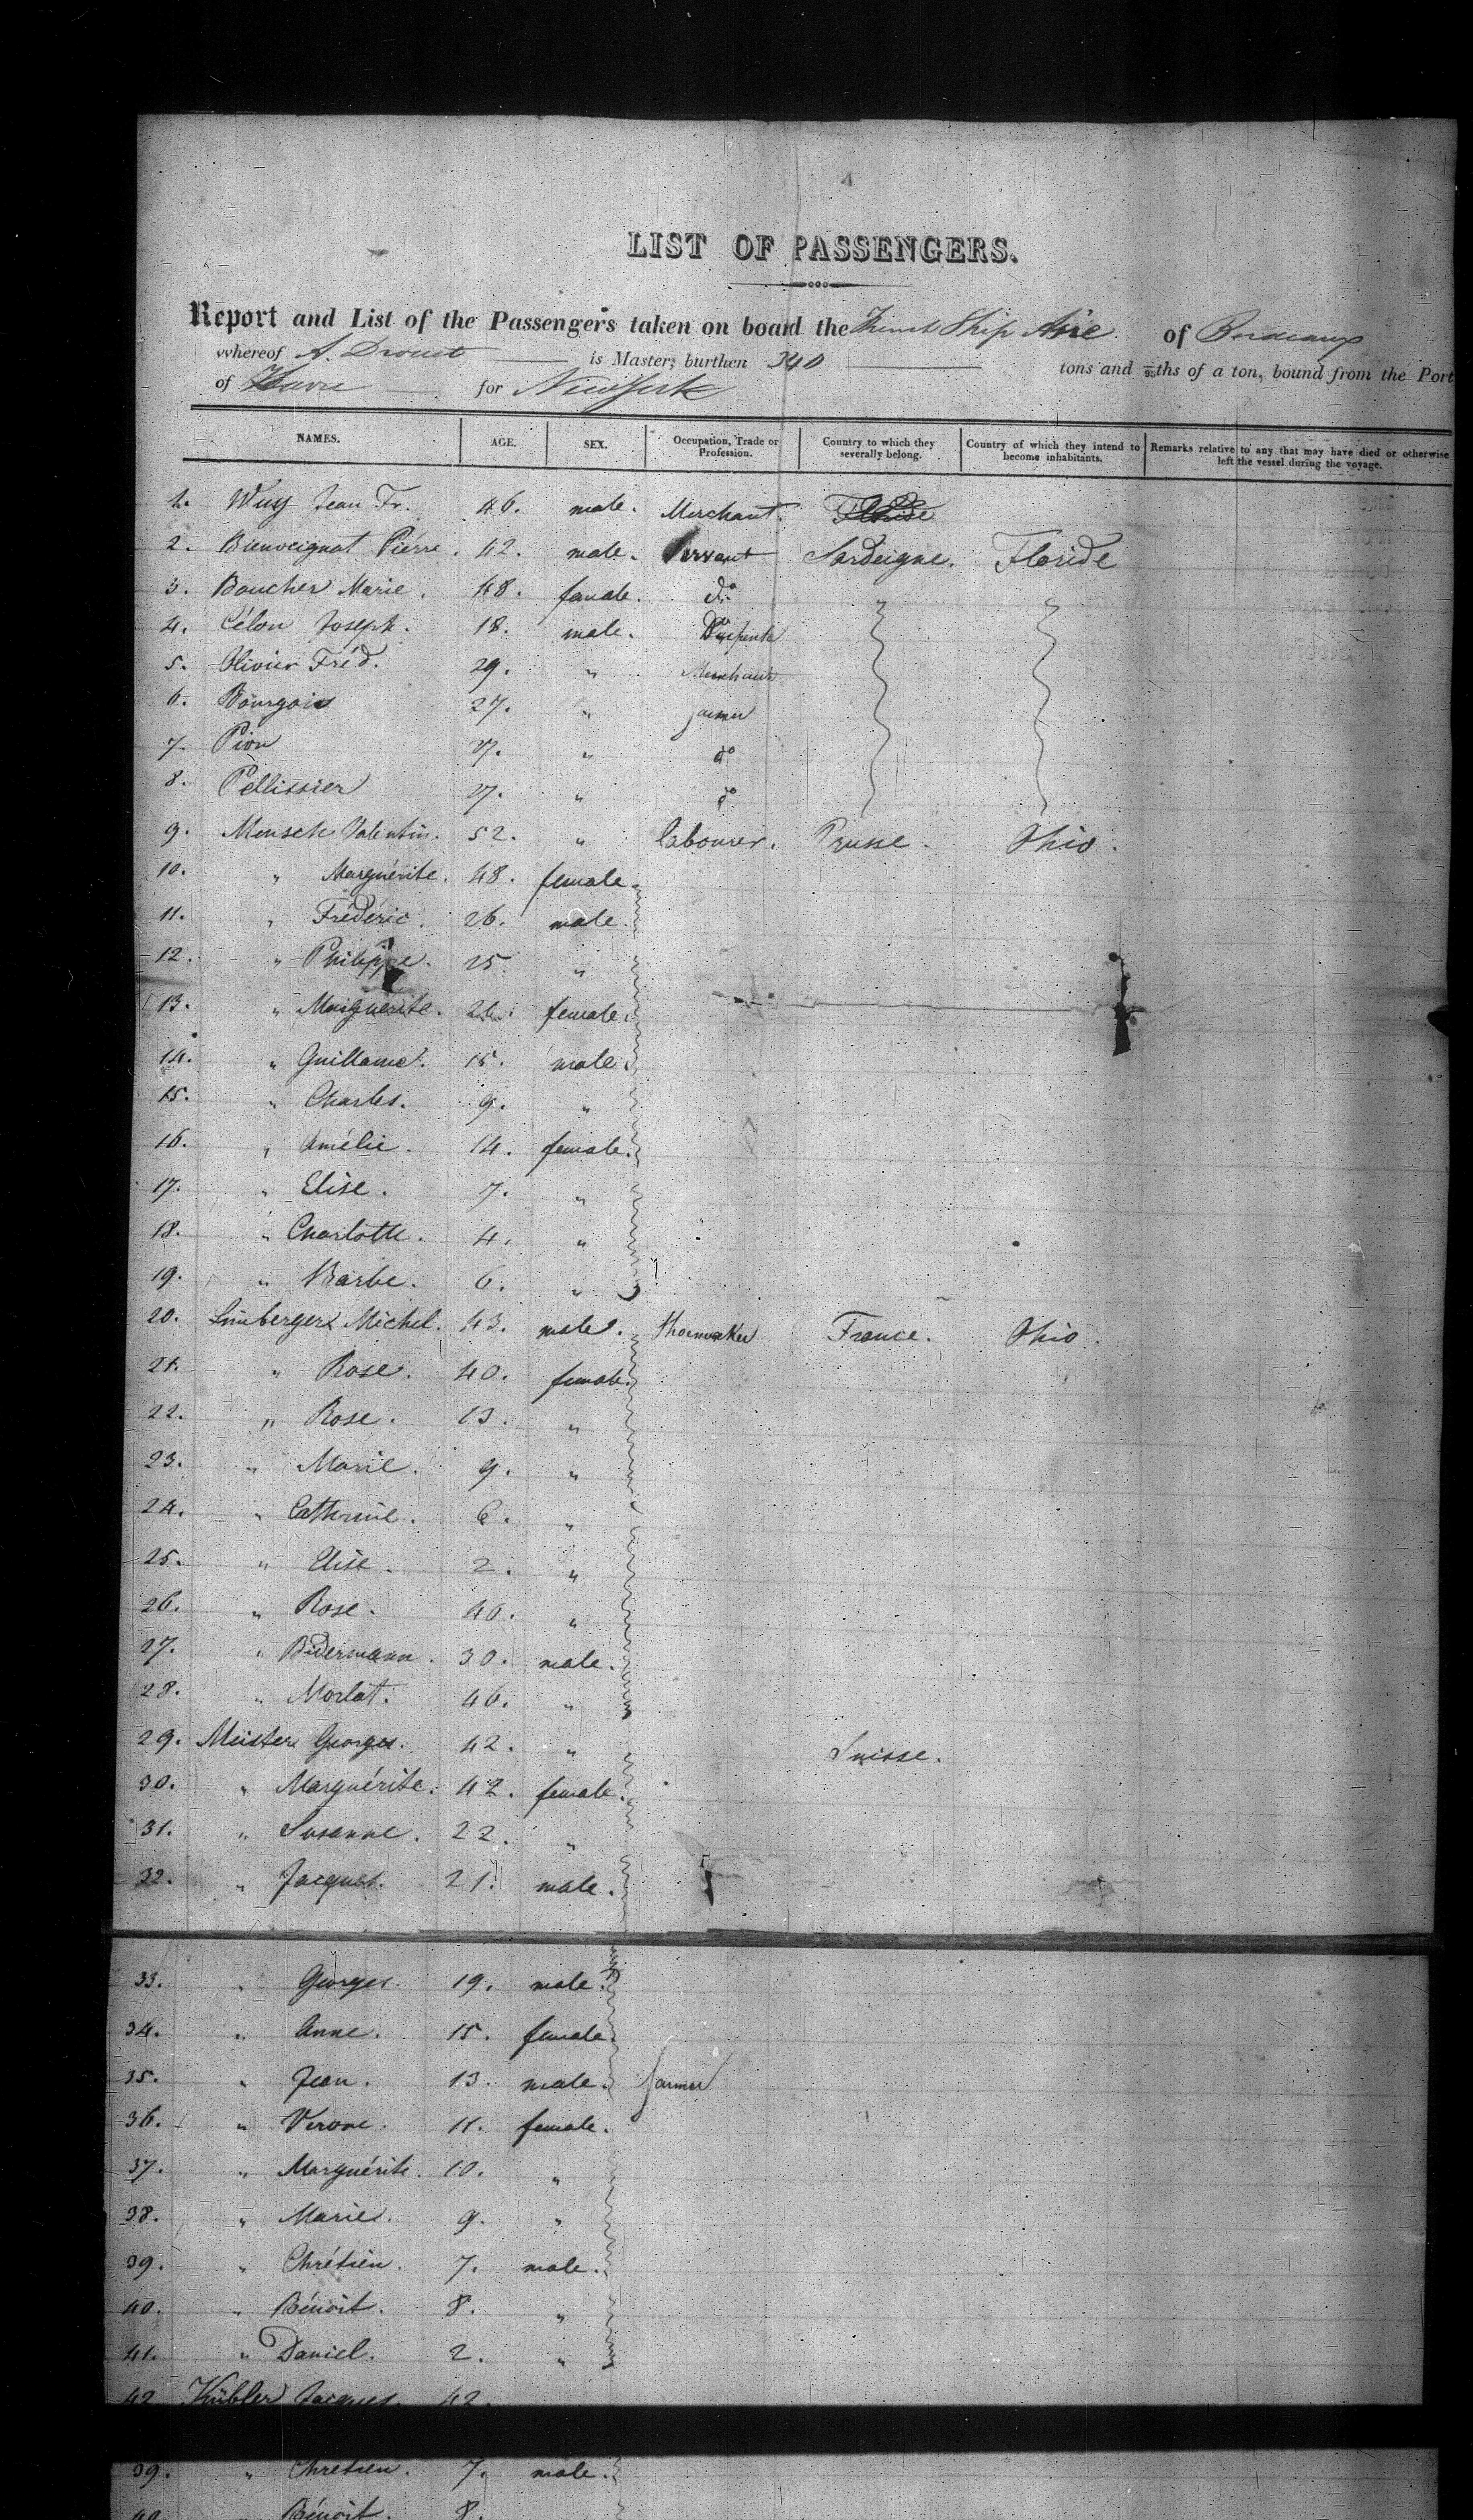 LIST OF PASSENGERS.
Report and List of the Passengers taken on board the French Ship of Bordeaux
whereof A. Drouet is Master, burthen 340 tons and ths of a ton, bound from the Port
of Havre for New York
NAMES. AGE. SEX. Occupation, Trade or Profession. Country to which they severally belong. Country of which they intend to become inhabitants. Remarks relative to any that may have died or otherwise left the vessel during the voyage.
1. Jean Fr. 46. male. Merchant.
2. Bienveignat Pierre. 42. male. Servant Sardeigne. Floride
3. Boucher Marie. 48. female. do
4. Célon Joseph. 18. male.
5. Olivier Fréd. 29. " Merchant
6. Bourgois 27. " farmer
7. Pion 27. " do
8. Pellissier 27. " do
9. Mensch Valentin. 52. " labourer. Prusse. Ohio.
10. " Marguérite. 48. female.
11. " Fréderic. 26. male.
12. " Philippe. 25. "
13. " Marguerite. 26. female.
14. " Guillaume. 15. male.
15. " Charles. 9. "
16. " Amélie. 14. female.
17. " Elise. 7. "
18. " Charlotte. 4. "
19. " Barbe. 6. "
20. Michel. 43. male. Shoemaker France. Ohio.
21. " Rose. 40. female.
22. " Rose. 13. "
23. " Marie. 9. "
24. " Catherine. 6. "
25. " Elise. 2. "
26. " Rose. 40. "
27. " Bidermann. 30. male.
28. " Morlat. 46. "
29. Meister Georges. 42. " Suisse.
30. " Marguérite. 42. female.
31. " Susanne. 22. "
32. " Jacques. 21. male.
33. " Georges. 19. male.
34. " Anne. 15. female.
35. " Jean. 13. male. farmer
36. " Verone. 11. female.
37. " Marguérite. 10. "
38. " Marie. 9. "
39. " Chrétien. 7. male.
40. " Bénoit. 8. "
41. " Daniel. 2. "
42 Kübler Jacques. 42.
39. " Chretien. 7. male.
40. " Bénoit. 8.